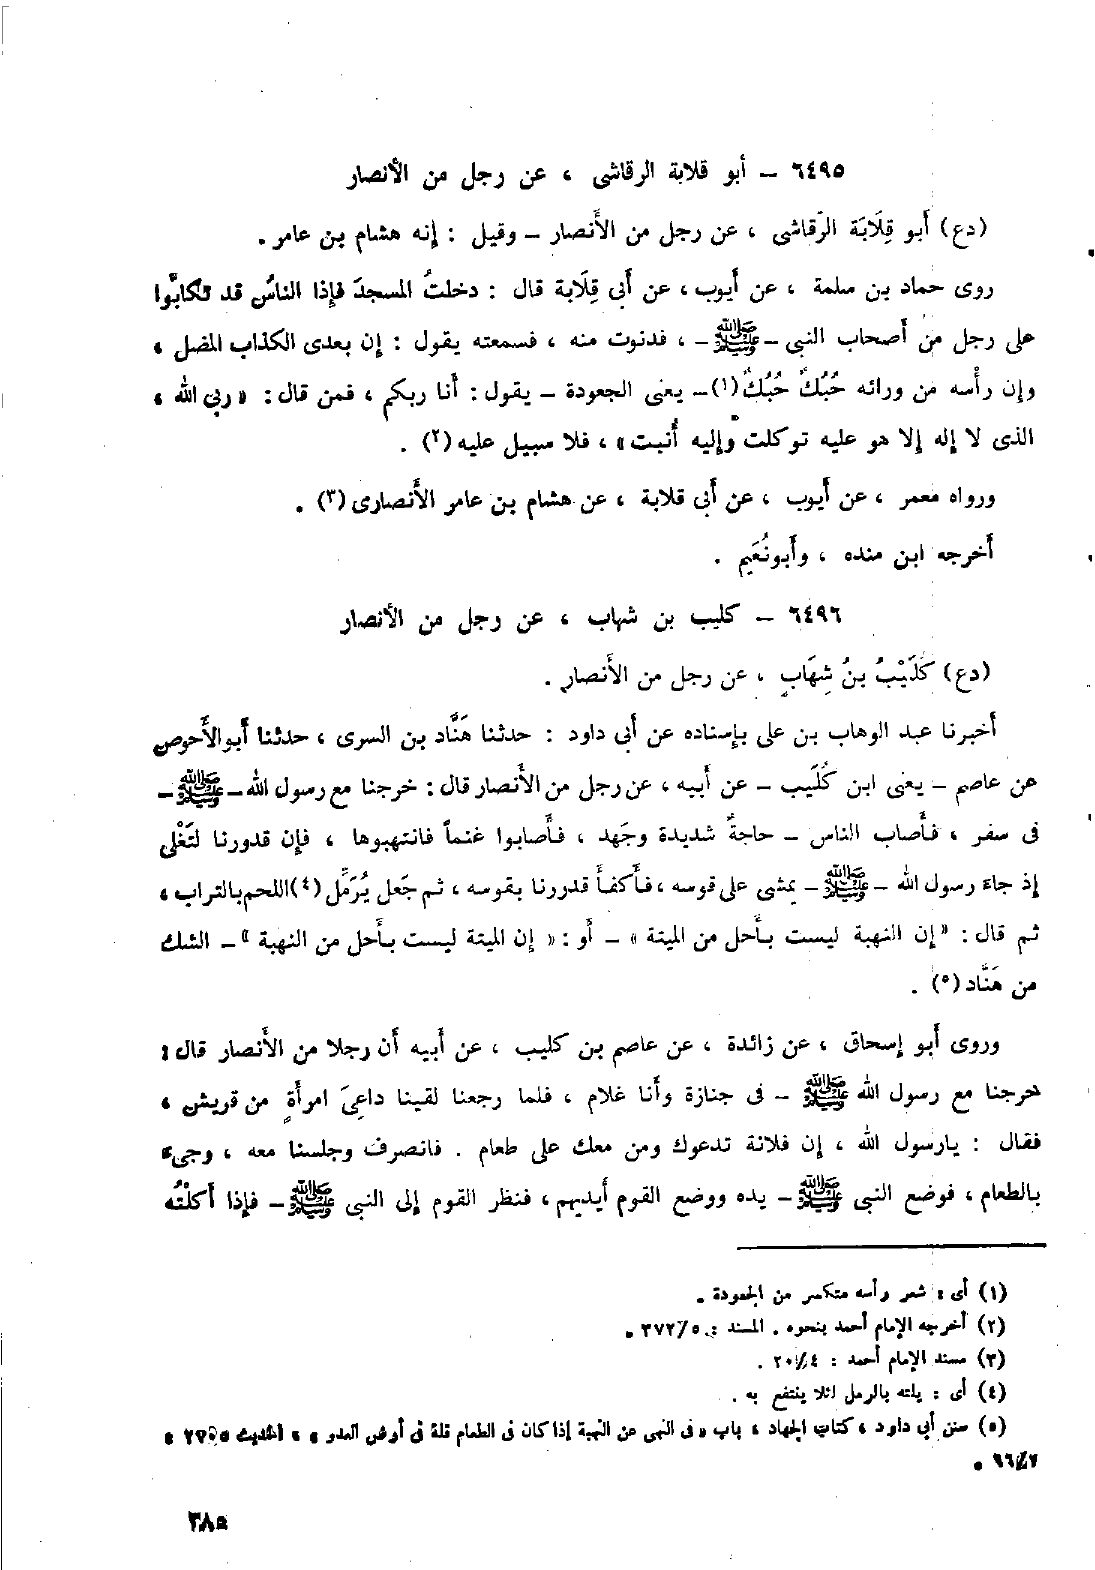 ٦٤٩٥ – أبو قلابة الرقاشى ، عن رجل من الأنصار
(دع) أبو قِلَابَة الرَّقاشى ، عن رجل من الأَنصار – وقيل : إنه هشام بن عامر .
روى حماد بن سلمة ، عن أَيوب ، عن أَبي قِلَابة قال : دخلتُ المسجدَ فإذا الناسُ قد تكابُّوا
على رجل من أَصحاب النبى – ﷺ – ، فدنوت منه ، فسمعته يقول : إن بعدى الكذاب المضل ،
وإن رأْسه من ورائه حُبُكٌ حُبُكٌ (١) – يعنى الجعودة – يقول : أَنا ربكم ، فمن قال : « ربى الله ،
الذى لا إله إلا هو عليه توكلت وإليه أُنيت » ، فلا سبيل عليه (٢) .
ورواه معمر ، عن أَيوب ، عن أَبي قلابة ، عن هشام بن عامر الأَنصارى (٣) .
أَخرجه ابن منده ، وأَبونُعَيم .
٦٤٩٦ – كليب بن شهاب ، عن رجل من الأنصار
(دع) كُلَيْبُ بنُ شِهَابٍ ، عن رجل من الأَنصار .
أَخبرنا عبد الوهاب بن على بإسناده عن أَبي داود : حدثنا هَنَّاد بن السرى ، حدثنا أَبوالأَحوص
عن عاصم – يعنى ابن كُلَيب – عن أَبيه ، عن رجل من الأَنصار قال : خرجنا مع رسول الله – ﷺ –
فى سفر ، فأَصاب الناس – حاجةٌ شديدة وجَهد ، فأَصابوا غنماً فانتهبوها ، فإن قدورنا لتَغْلِى
إذ جاءَ رسول الله – ﷺ – يمشى على قوسه ، فأَكفأَ قدورنا بقوسه ، ثم جَعل يُرَمِّل (٤) اللحم بالتراب ،
ثم قال : « إن النهبة ليست بأَحل من الميتة » – أَو : « إن الميتة ليست بأَحل من النهبة » – الشك
من هَنَّاد (٥) .
وروى أَبو إسحاق ، عن زائدة ، عن عاصم بن كليب ، عن أَبيه أَن رجلا من الأَنصار قال :
خرجنا مع رسول الله ﷺ – فى جنازة وأَنا غلام ، فلما رجعنا لقينا داعِىَ امرأَةٍ من قريش ،
فقال : يارسول الله ، إن فلانة تدعوك ومن معك على طعام . فانصرف وجلسنا معه ، وجىءَ
بالطعام ، فوضع النبى ﷺ – يده ووضع القوم أَيديهم ، فنظر القوم إلى النبى ﷺ – فإذا أكلْتُه
(١) أى : شعر رأسه متكسر من الجعودة .
(٢) أخرجه الإمام أحمد بنحوه . المسند : ٣٧٢/٥ .
(٣) مسند الإمام أحمد : ٢٠/٤ .
(٤) أى : يلته بالرمل لئلا ينتفع به .
(٥) سنن أبي داود ، كتاب الجهاد ، باب « فى النهى عن النهبة إذا كان فى الطعام قلة فى أرض العدو » ، الحديث ٢٧٠٥ :
٦٦/٣ .
٣٨٥